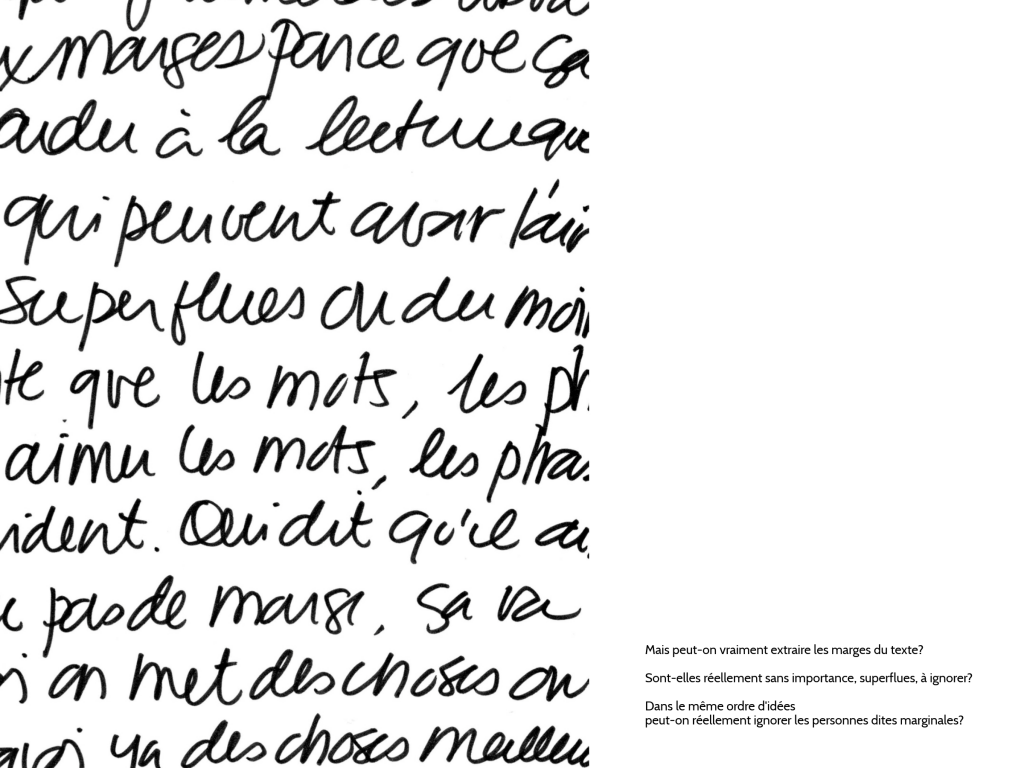 x marges parce que ça
à la lecture que
qui peuvent avoir l'air
superflues ou du moin
te que les mots, les ph
aimer les mots, les phras
ident. Qui dit qu'il au
pas de marge, ça va
on met des choses ou
y a des choses meilleu
Mais peut-on vraiment extraire les marges du texte?
Sont-elles réellement sans importance, superflues, à ignorer?
Dans le même ordre d'idées
peut-on réellement ignorer les personnes dites marginales?